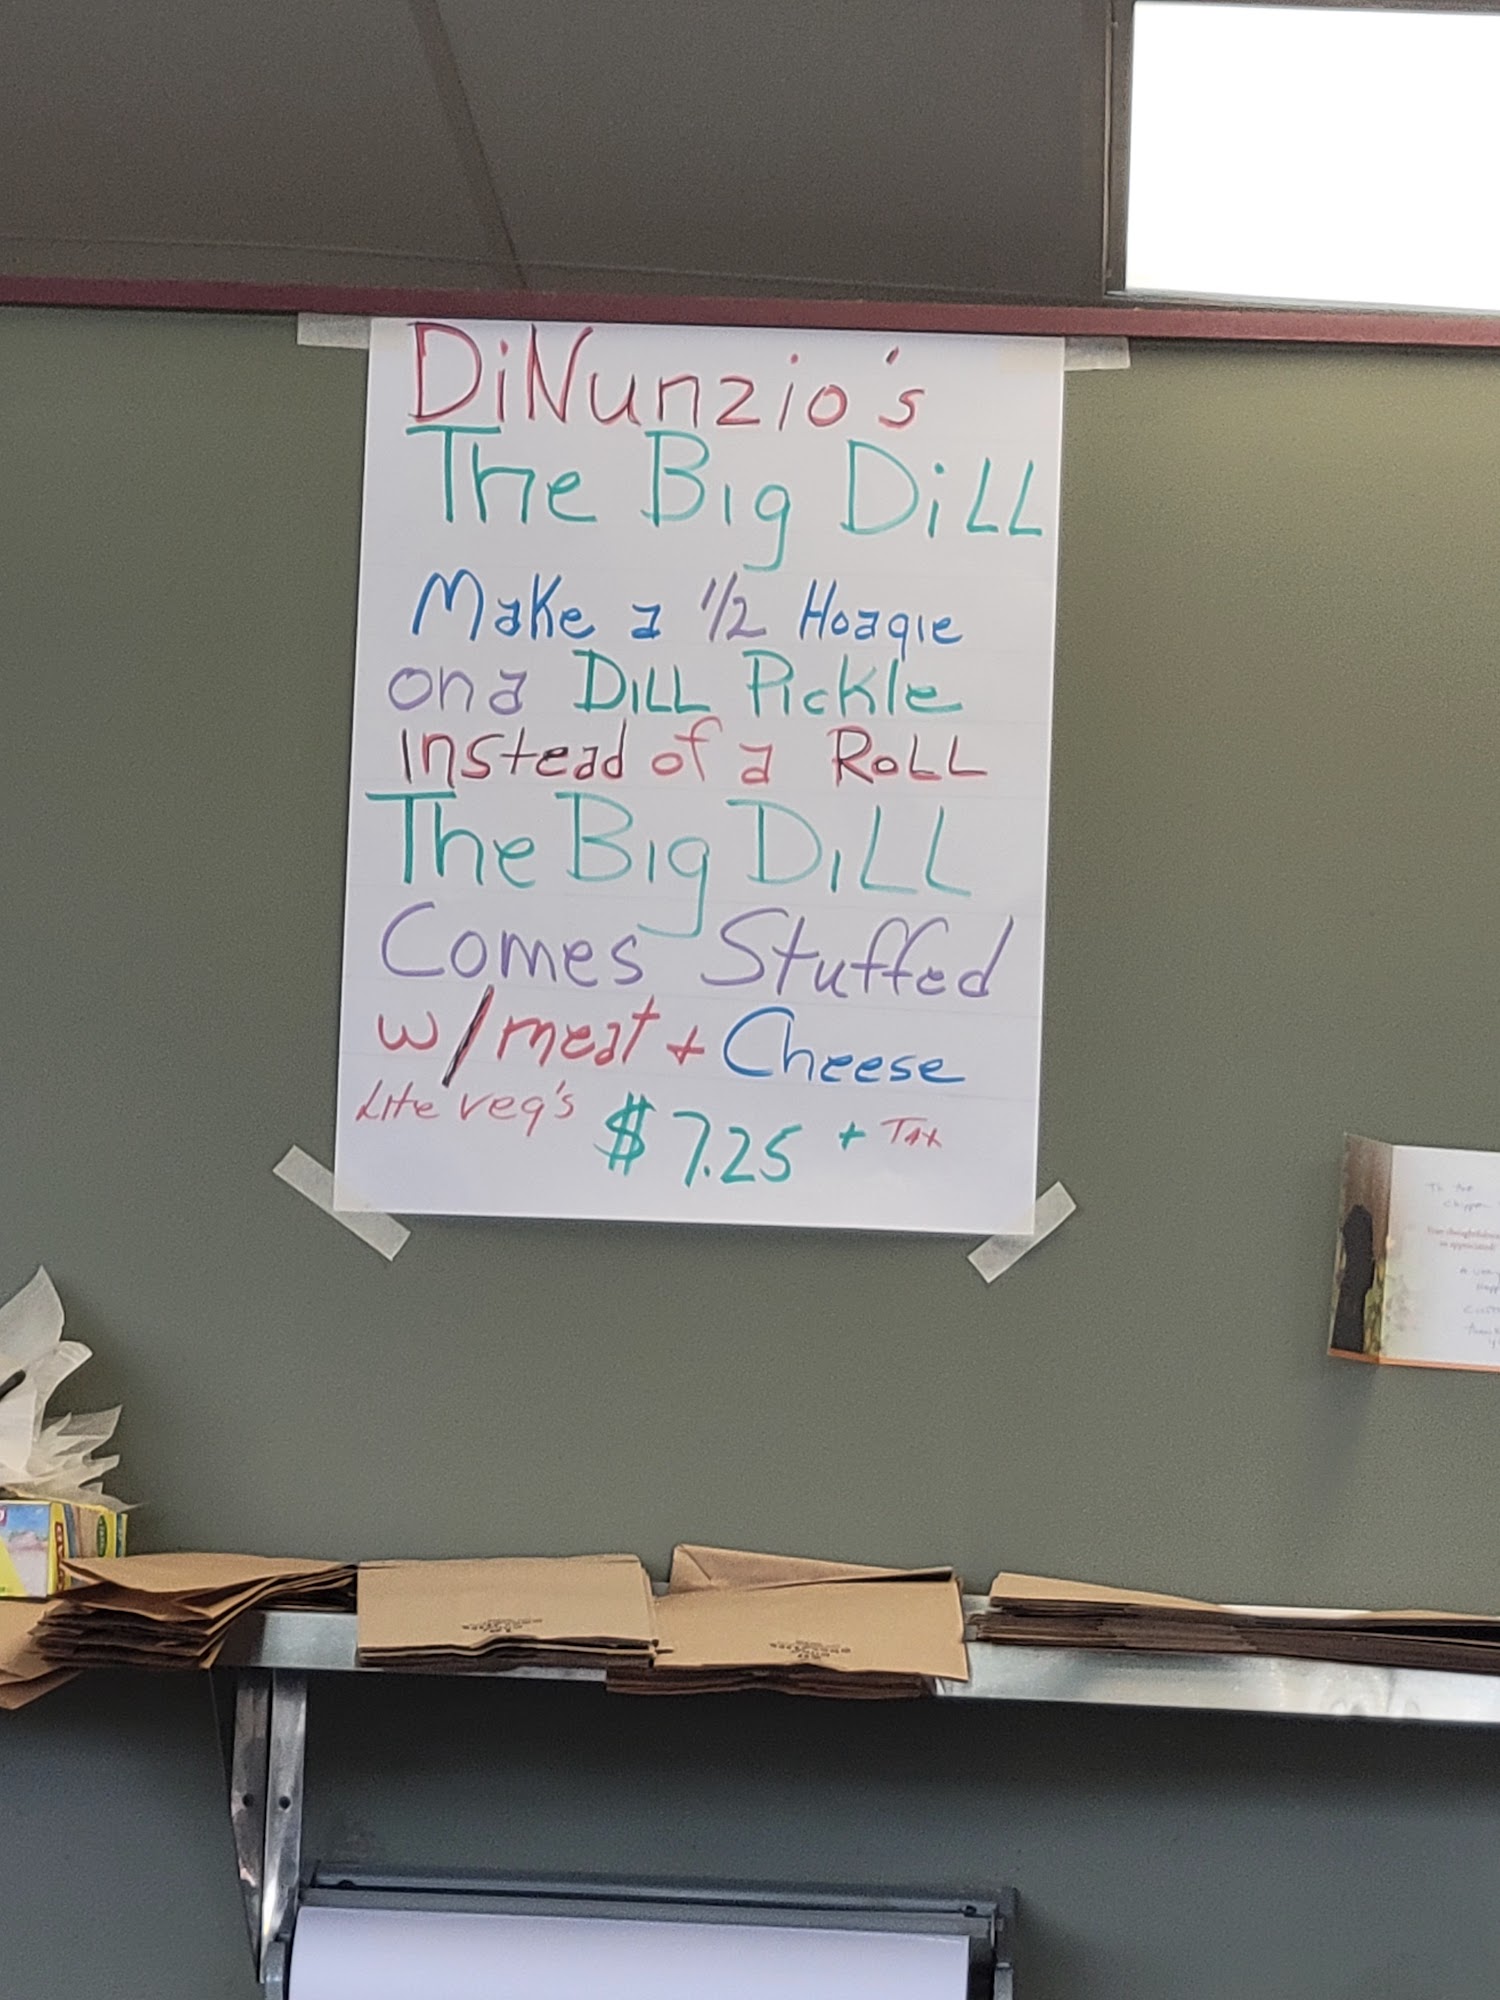 DiNunzio's
The Big DiLL
Make a 1/2 Hoagie
on a DiLL Pickle
instead of a RoLL
The Big DiLL
Comes Stuffed
w/meat + Cheese
Lite veg's $7.25 + Tax
To the